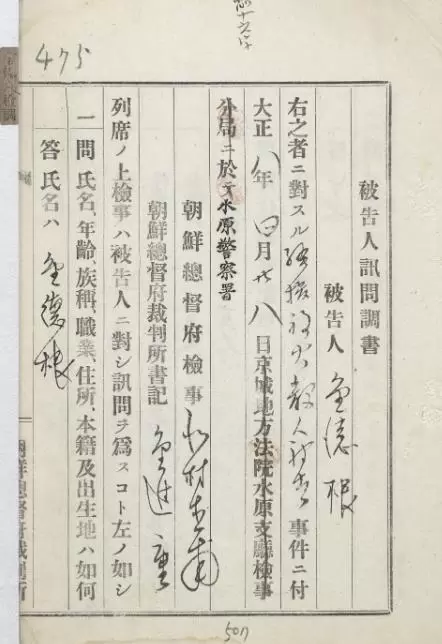 475
被告人訊問調書
被告人 金德根
右之者ニ對スル騷擾放火殺人事件ニ付
大正八年四月廿八日京城地方法院水原支廳檢事
分局ニ於テ水原警察署
朝鮮總督府檢事 北村直甫
朝鮮總督府裁判所書記 金進重
列席ノ上檢事ハ被告人ニ對シ訊問ヲ爲スコト左ノ如シ
一問 氏名、年齡、族稱、職業、住所、本籍及出生地ハ如何
答 氏名ハ 金德根
朝鮮總督府裁判所
507